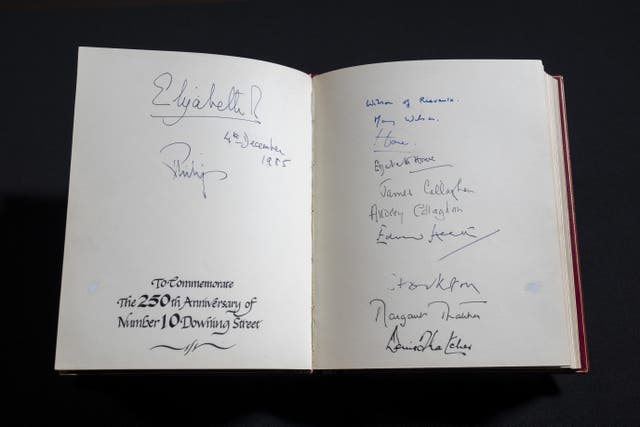 Elizabeth R
4th December
1985
Philip
To Commemorate
The 250th Anniversary of
Number 10 Downing Street
Wilson of Rievaulx.
Mary Wilson.
Home.
Elizabeth Home
James Callaghan
Audrey Callaghan
Edward Heath
Stockton
Margaret Thatcher
Denis Thatcher